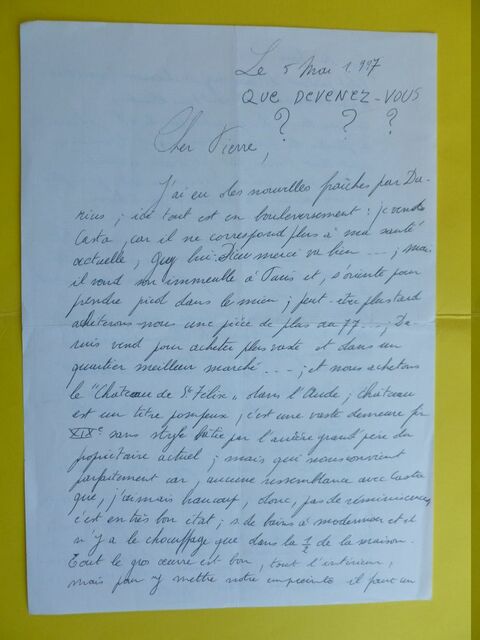 Le 5 Mai 1.997
QUE DEVENEZ-VOUS
? ? ?
Cher Pierre,
J'ai eu des nouvelles fraîches par Da-
rius ; ici tout est en bouleversement : je vends
Casta, car il ne correspond plus à ma santé
actuelle, Guy lui Dieu merci va bien ... ; mais
il vend son immeuble à Paris et, s'oriente pour
prendre pied dans le mien ; peut-être plus tard
achèterons nous une pièce de plus au 77 ..., Da-
rius vend pour acheter plus vaste et dans un
quartier meilleur marché ... ; et nous achetons
le "Château de Ste Félix" dans l'Aude ; château
est un titre pompeux, c'est une vaste demeure fin
XIXe sans style bâtie par l'arrière grand père du
propriétaire actuel ; mais qui nous convient
parfaitement car, aucune ressemblance avec Casta
que, j'aimais beaucoup, donc, pas de réminiscences,
c'est en très bon état ; s. de bains à moderniser et il
n'y a le chauffage que dans la 1/2 de la maison.
Tout le gros œuvre est bon, tout l'intérieur,
mais pour y mettre notre empreinte il faut un